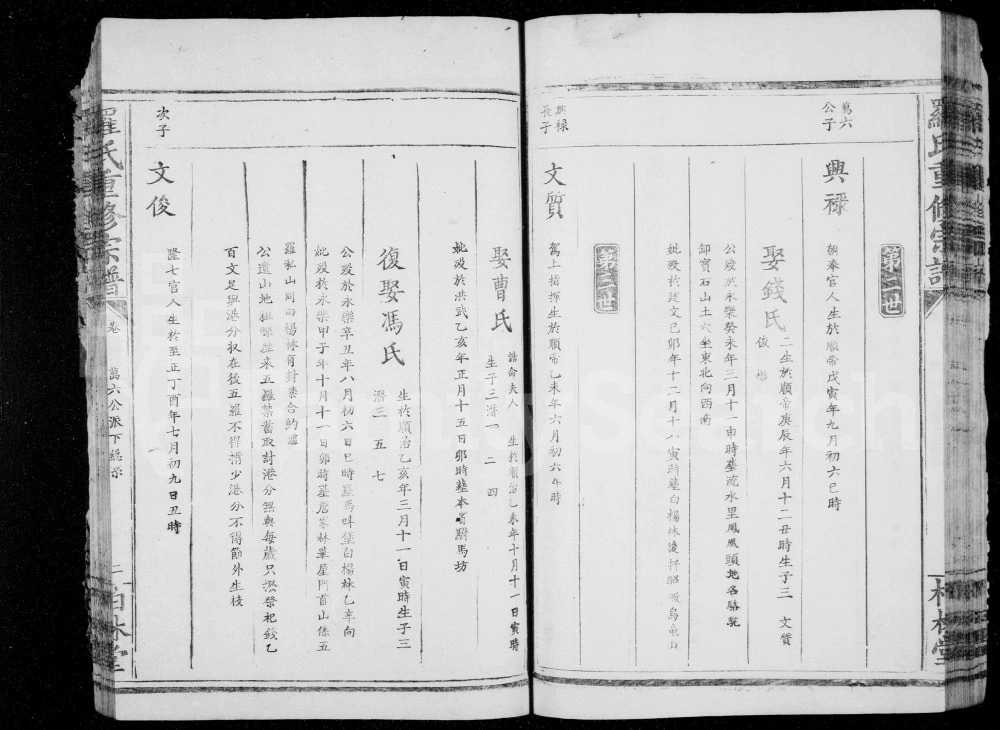 羅氏重修宗譜
柏林堂
第二世
萬六
公子
興祿
朝奉官人生於順帝戊寅年九月初六巳時
娶錢氏
二生於順帝庚辰年六月十二丑時生子三 文質
俊 彬
公歿於永樂癸未年三月十一申時墓流水里鳳凰頭地名駱駝
卸寶石山土穴坐東北向西南
妣歿於建文己卯年十二月十八寅時墓白楊林後
第三世
興祿
長子
文質
駕上指揮生於順帝乙未年六月初六午時
娶曹氏
誥命夫人 生於順治乙未年十月十一日寅時
生子三潛一 二 四
妣歿於洪武乙亥年正月十五日卯時墓本省駙馬坊
復娶馮氏
生於順治乙亥年三月十一日寅時生子三
潛三 五 七
公歿於永樂辛丑年八月初六日巳時墓馬畔堡白楊林乙辛向
妣歿於永樂甲子年十月十一日卯時墓唐家林單屋門首山係五
羅私山同向楊林有封禁合約據
公遺山地 歷來五羅禁蓄取討港分無與每歲只撥祭祀錢乙
百文足與港分收在後五羅不得揹少港分不得節外生枝
次子
文俊
隆七官人生於至正丁酉年七月初九日丑時
羅氏重修宗譜
卷
萬六公派下總系
二
柏林堂